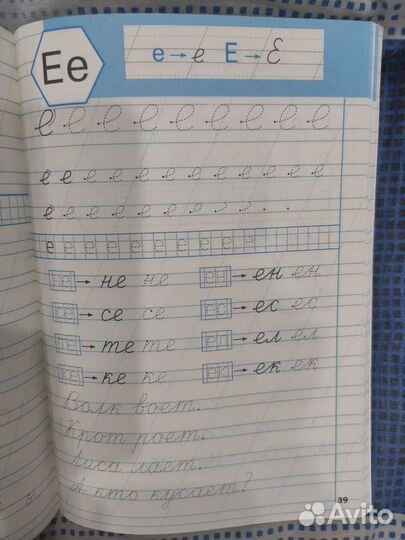 Ее е → е Е → Е
е е е е е е е е е
е е е е е е е е е е е е е
е е е е е е е е
е е е е е е е е е
не → не не ен → ен ен
се → се се ес → ес ес
те → те те ел → ел ел
ке → ке ке ек → ек ек
Волк воет.
Крот роет.
Лиса лает.
А кто кусает?
39
Avito